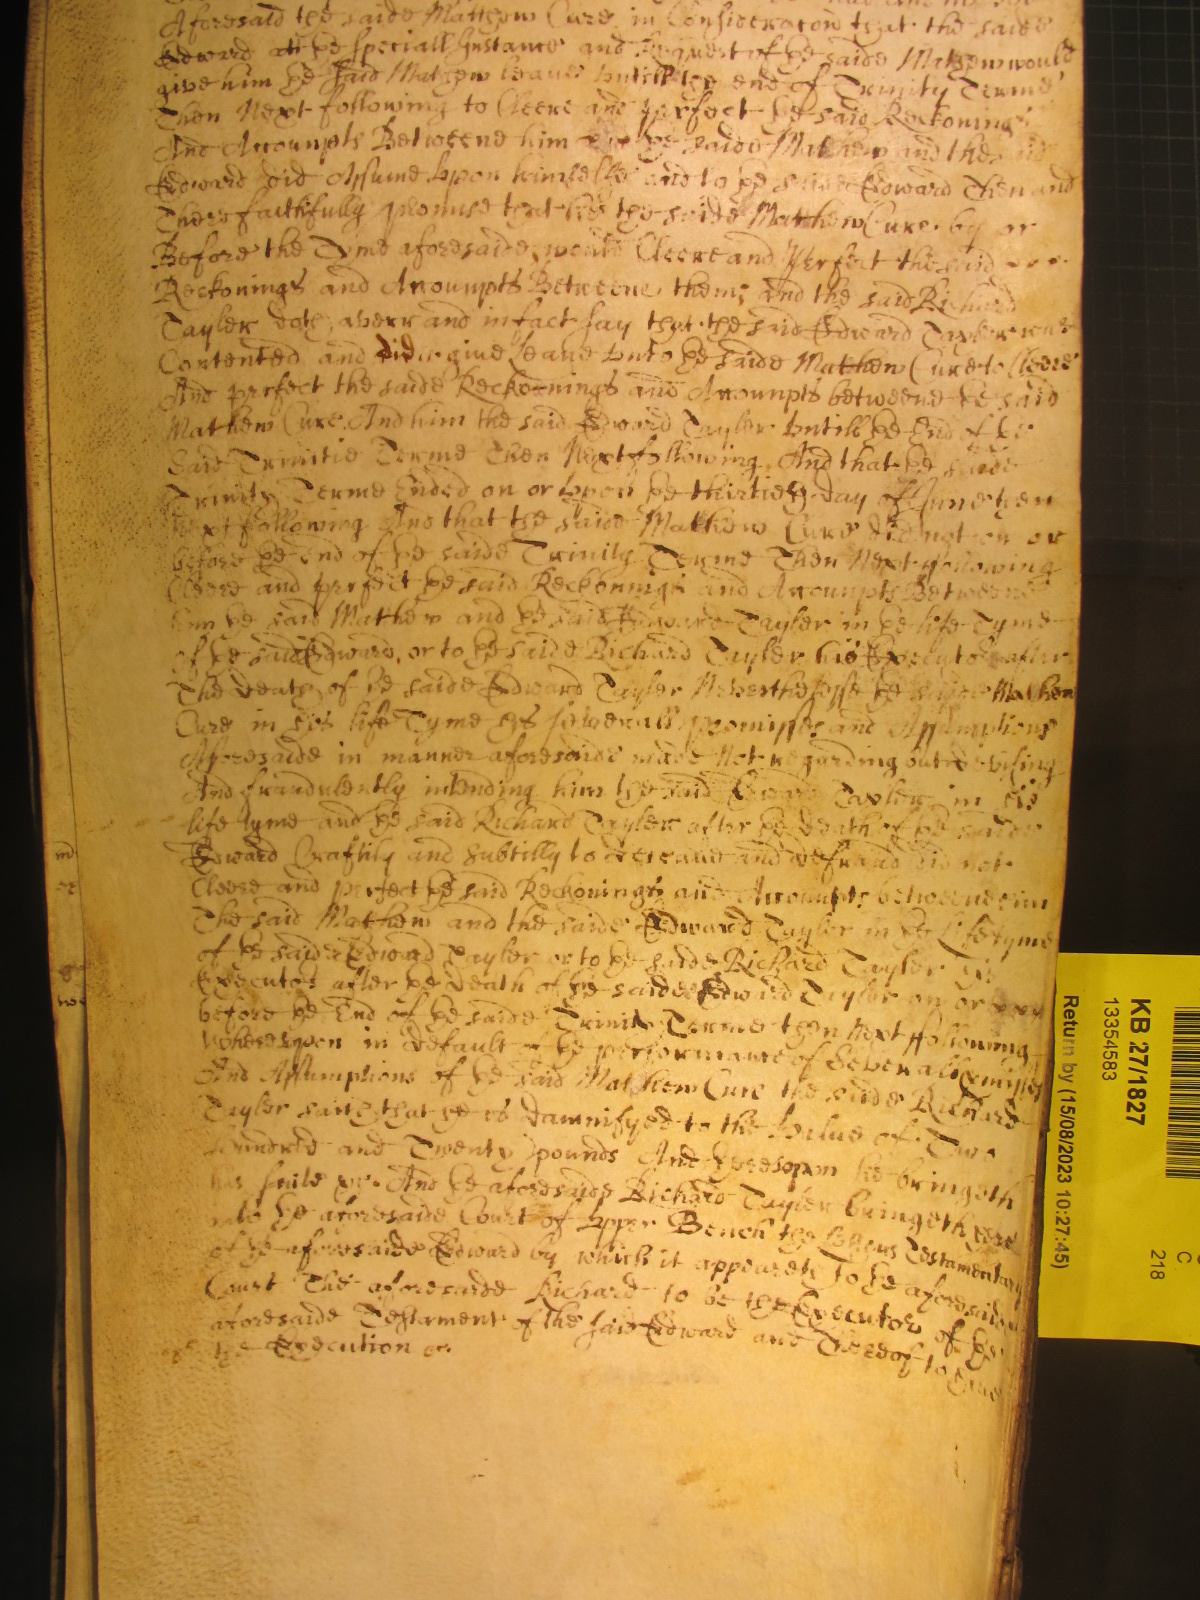 Aforesaid the saide Matthew Cure in Consideracon that the saide
Edward att ye speciall Instance and Request of ye saide Mathew would
give him ye said Mathew leave untill the end of Trinity Terme
Then Next following to Cleere and perfect ye said Reckonings
And Accounpts Betweene him ye saide Mathew and the said
Edward did Assume upon himselfe and to ye saide Edward Then and
There faithfully promise that he the saide Matthew Cure by or
Before the Tyme aforesaide would Cleere and Perfect the said
Reckonings and Accounpts Betweene them, and the said Richard
Tayler doth averr and in fact say that the said Edward Tayler was
Contented and did give leave unto ye saide Mathew Cure to Cleere
And perfect the saide Reckonnings and Accounpts betweene ye said
Mathew Cure And him the said Edward Tayler untill ye End of ye
said Trinitie Terme Then Next following And that ye saide
Trinity Terme Ended on or upon ye thirtieth day of June then
next following And that the saide Mathew Cure did not on or
before ye End of ye saide Trinity Terme Then Next following
Cleere and perfect ye said Reckonnigs and Accounpts Betweene
him ye said Mathew and ye said Edward Tayler in ye life Tyme
of ye said Edward, or to ye saide Richard Tayler his Executor after
The death of ye saide Edward Tayler Neverthelesse ye saide Mathew
Cure in his life Tyme his severall promisses and Assumptions
Aforesaide in manner aforesaide made Not regarding but devising
And fraudulently intending him the said Edward Tayler in his
life tyme and ye said Richard Tayler after ye death of ye saide
Edward Craftily and subtilly to deceave and defraud did not
Cleere and perfect ye said Reckonings and Accounpts betweene him
The said Mathew and the saide Edward Tayler in ye life tyme
of ye saide Edward Tayler or to ye saide Richard Tayler his
Executor after ye death of ye saide Edward Tayler on or
before ye End of ye saide Trinity Terme then Next following
Whereupon in default of ye performance of severall promisses
And Assumptions of ye said Mathew Cure the saide Richard
Tayler saith that he is damnifyed to the value of Two
hundred and Twenty pounds And thereupon he bringeth
his suite &c. And ye aforesaide Richard Tayler bringeth here
into ye aforesaide Court of upper Bench the letters Testamentary
of ye aforesaide Edward by which it appeareth To ye aforesaide
Court The aforesaide Richard to be the Executor of ye
aforesaide Testament of the said Edward and Thereof to have
the Execution &c.
KB 27/1827
13354583
Return by (15/08/2023 10:27:45)
C
218